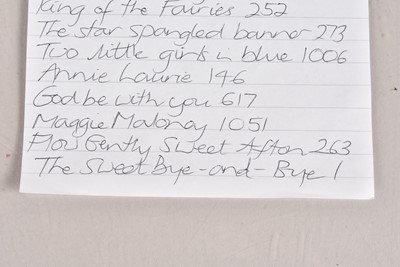 King of the Fairies 252
The star spangled banner 273
Two little girls in blue 1006
Annie Laurie 146
God be with you 617
Maggie Maloney 1051
Flow Gently Sweet Afton 263
The Sweet Bye-and-Bye 1